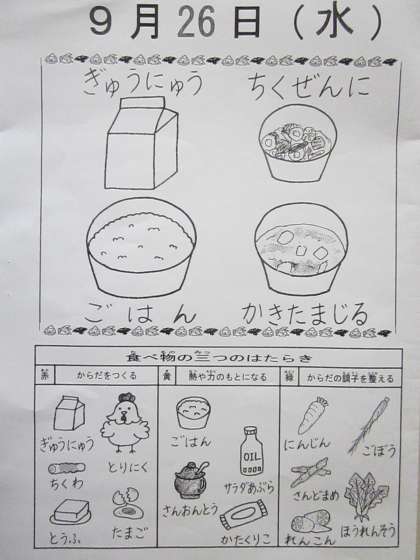 ９月26日（水）
ぎゅうにゅう　ちくぜんに
ごはん　かきたまじる
食べ物の三つのはたらき
赤　からだをつくる　黄　熱や力のもとになる　緑　からだの調子を整える
ぎゅうにゅう　とりにく
ちくわ
とうふ　たまご
ごはん
サラダあぶら
さんおんとう
かたくりこ
にんじん　ごぼう
さんどまめ
れんこん　ほうれんそう
OIL